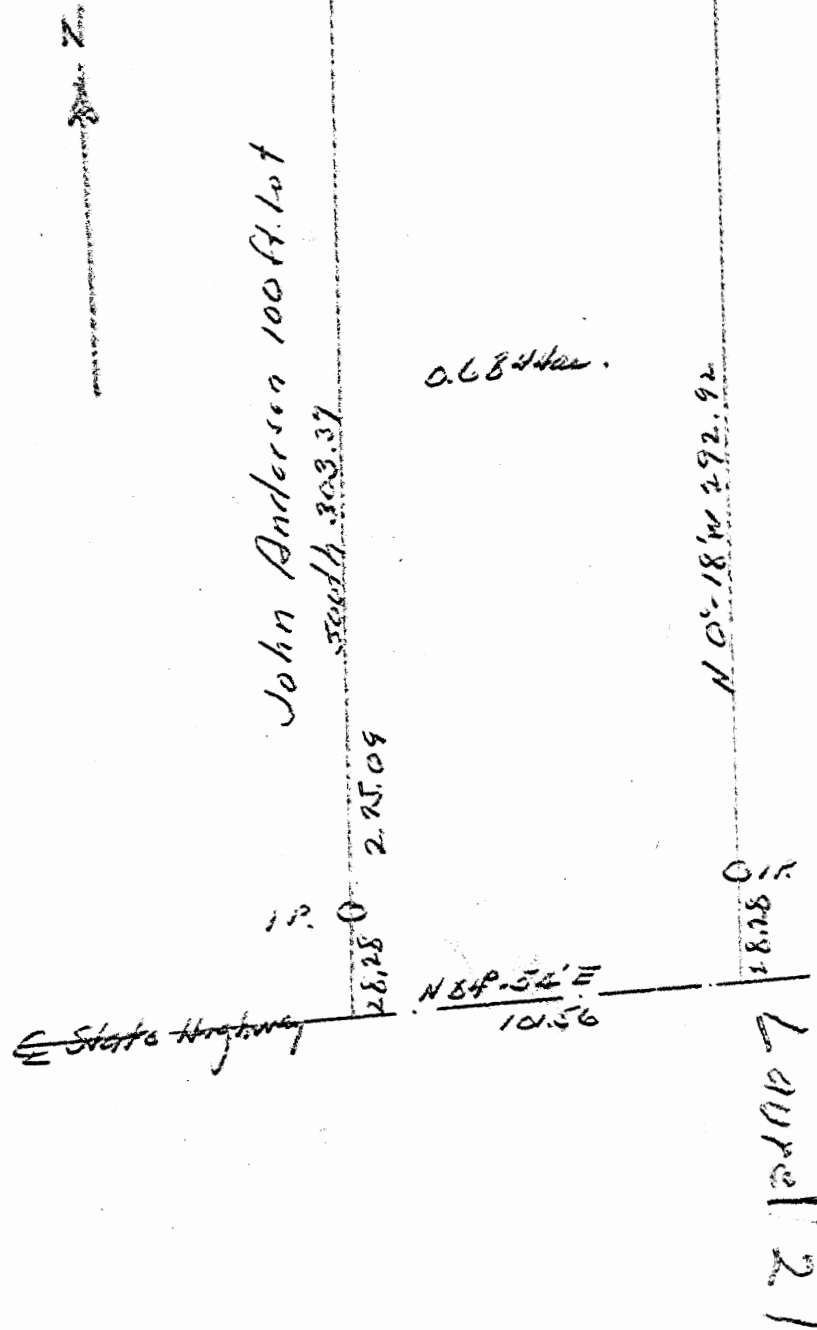 N
John Anderson 100 ft. Lot
South 303.37
0.6844ac.
N 0°-18'W 292.92
275.09
I.P.
I.P.
28.28
28.28
N 84°-54' E
101.56
℄ State Highway